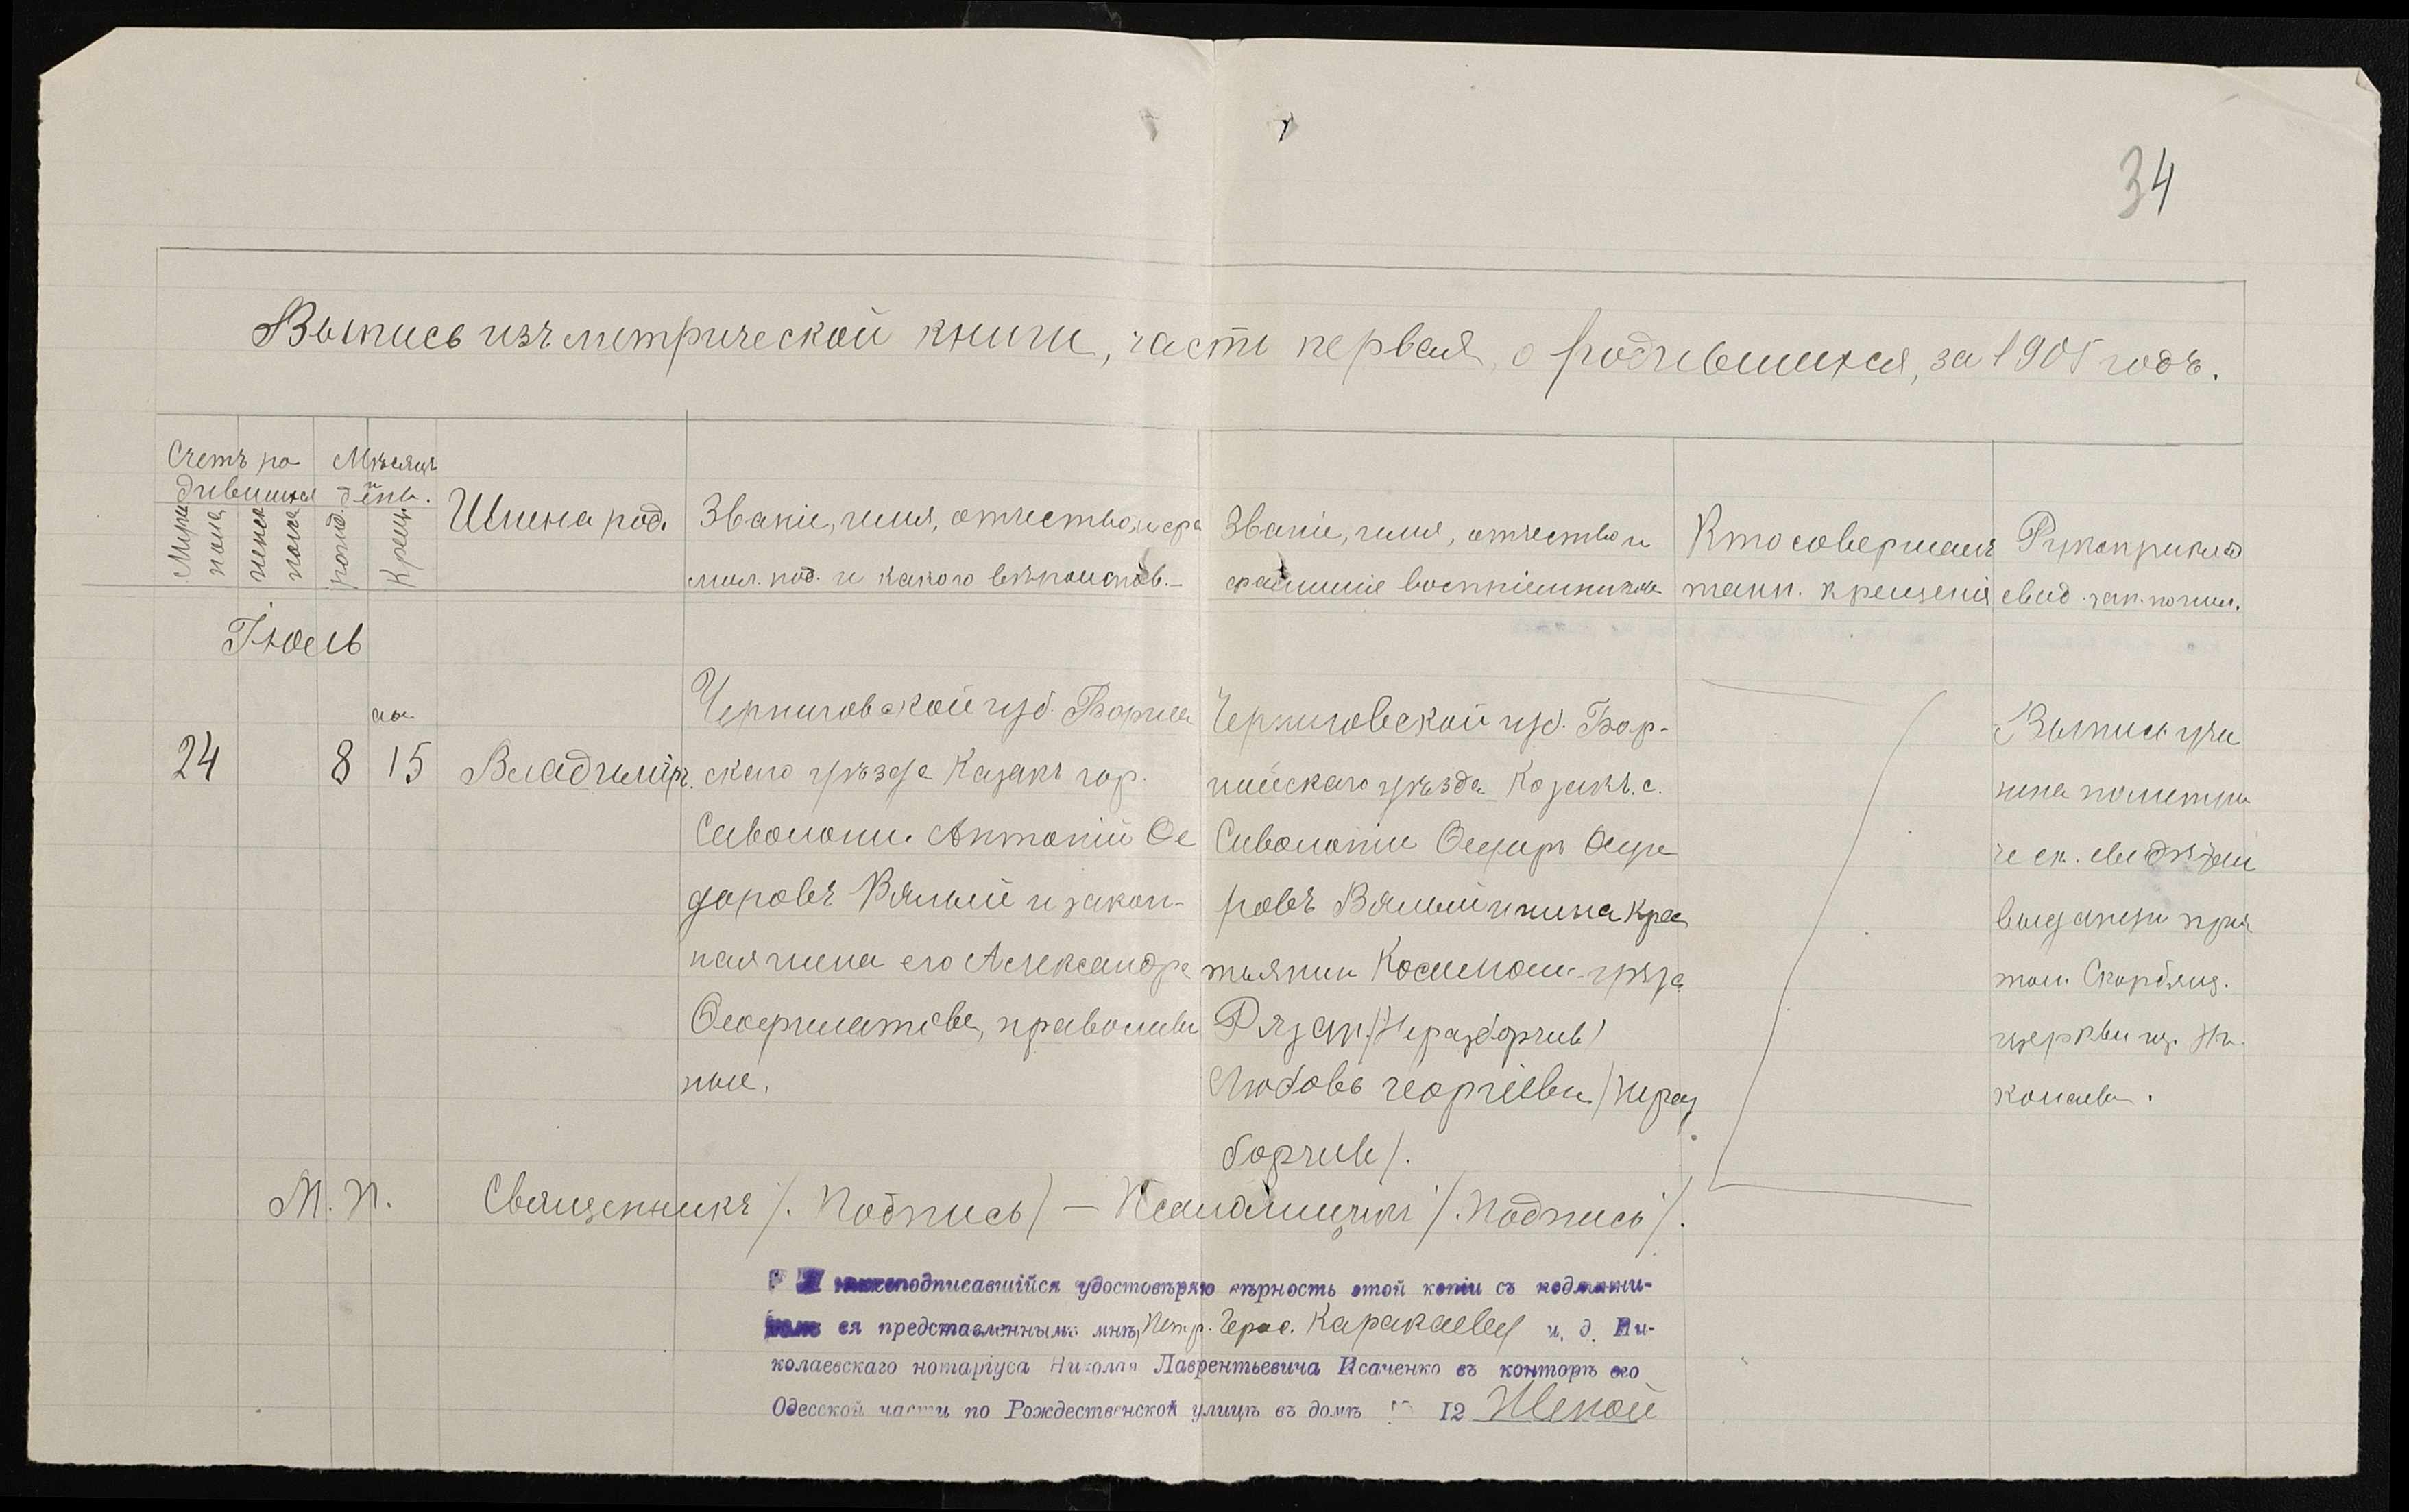 34
Выпись изъ метрической книги, часть первая, о родившихся, за 1905 годъ.
Счетъ ро
дившихся
Мужс
пола
женск
пола
Мѣсяцъ
и
день.
рожд.
Крещ.
Имена род.
Званіе, имя, отчество, и фа
мил. род. и какого вѣроиспов.
Званіе, имя, отчество и
фамиліе воспріемниковъ
Кто совершалъ
таин. крещенія
Рукоприклад
свид. зап. по жел.
Іюль
24
8
15
Владиміръ.
Черниговской губ. Борзен
скаго уѣзда Казакъ гор.
Сиволожи Антоній Ѳе
доровъ Вялый и закон-
ная жена его Александра
православ
ные.
Черниговской губ. Бор-
скаго уѣзда Козакъ с.
Сиволожи
ровъ Вялый и жена крес
тьянин уѣзда
Рязан. /Неразборчив/
Любовь Георгіева /Нераз
борчив/.
Выпись учи
нена по метри
ческ. свидѣт
выданном прич
том Скорбящ.
церкви г. Ни
колаева.
М. П.
Священникъ /Подпись/ — Псаломщикъ /Подпись/.
нижеподписавшійся удостовѣряю вѣрность этой копіи съ подлинни-
комъ ея представленнымъ мнѣ, Петр. Герас. Каракаеву и. д. Ни-
колаевскаго нотаріуса Николая Лаврентьевича Исаченко въ конторѣ его
Одесской части по Рождественской улицѣ въ домѣ № 12